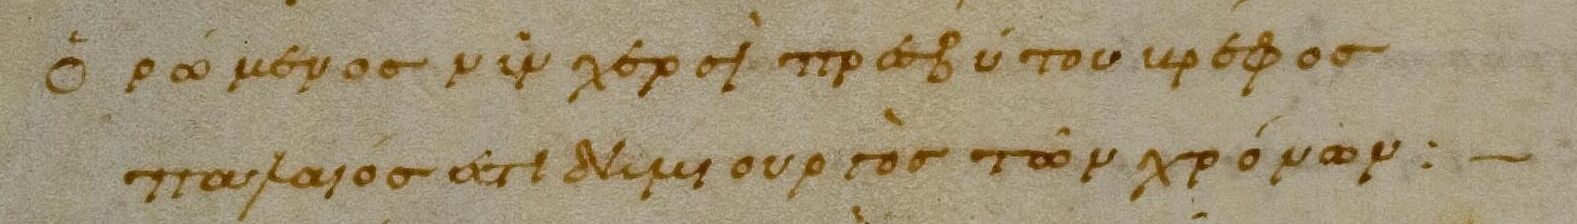 Ὁρώμενος νῦν χερσὶ πρεσβύτου βρέφος
παλαιός ἐστι δημιουργὸς τῶν χρόνων : ~